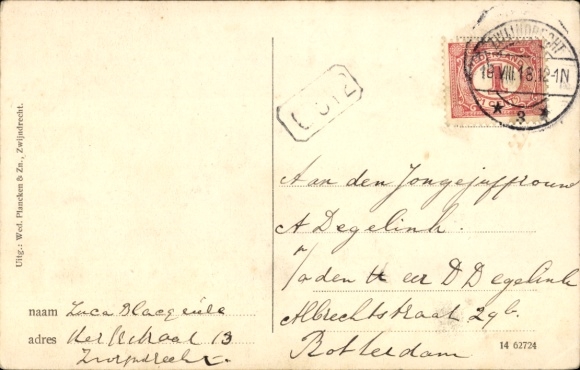 Uitg.: Wed. Plancken & Zn., Zwijndrecht.
ZWIJNDRECHT
18.VIII.18.12-1N
* 3 *
1
CENT
Aan den Jongejuffrouw
A Degelink
p/a den er D Degelink
Albrechtstraat 29b.
Rotterdam
naam Luca
adres Kerkstraat 13
Zwijndrecht
14 62724